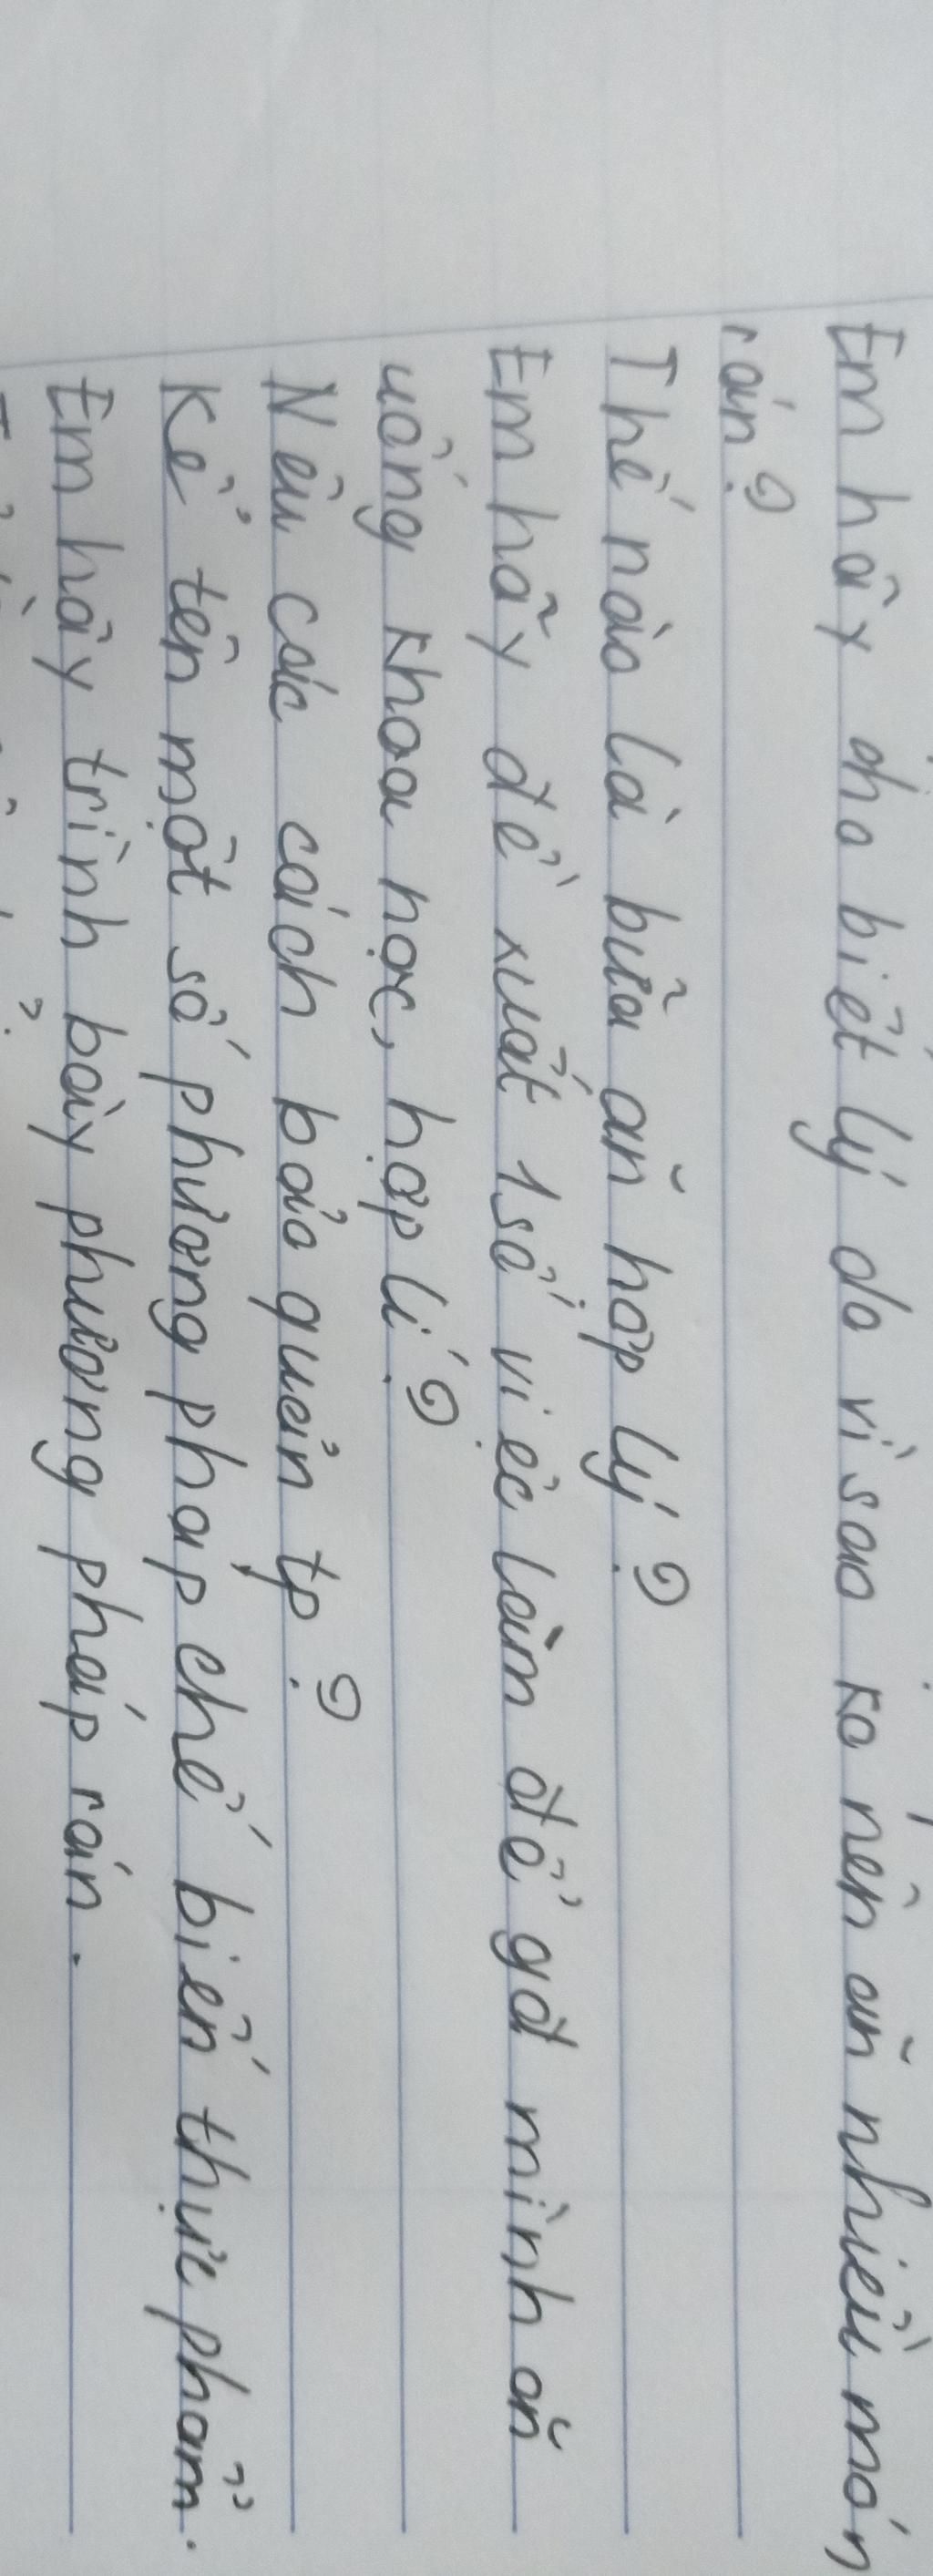 Em hãy cho biết lý do vì sao ko nên ăn nhiều món
rán?
Thế nào là bữa ăn hợp lý?
Em hãy đề xuất 1 số việc làm để gđ mình ăn
uống khoa học, hợp lí?
Nêu các cách bảo quản tp?
Kể tên một số phương pháp chế biến thực phẩm.
Em hãy trình bày phương pháp rán.